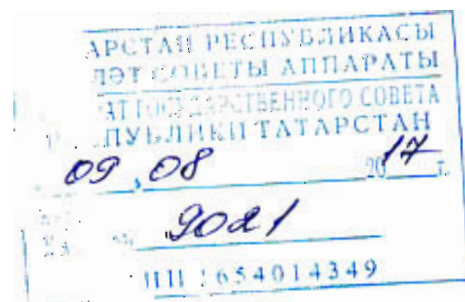 АРСТАН РЕСПУБЛИКАСЫ
ЛӘТ СОВЕТЫ АППАРАТЫ
АТ ГОСУДАРСТВЕННОГО СОВЕТА
ПУБЛИКИ ТАТАРСТАН
09 . 08 2017 г.
9021
ИНН 1654014349